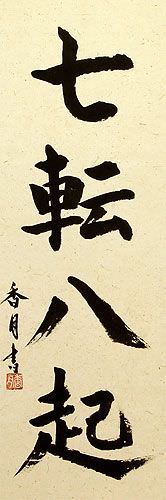 七転八起
香月書